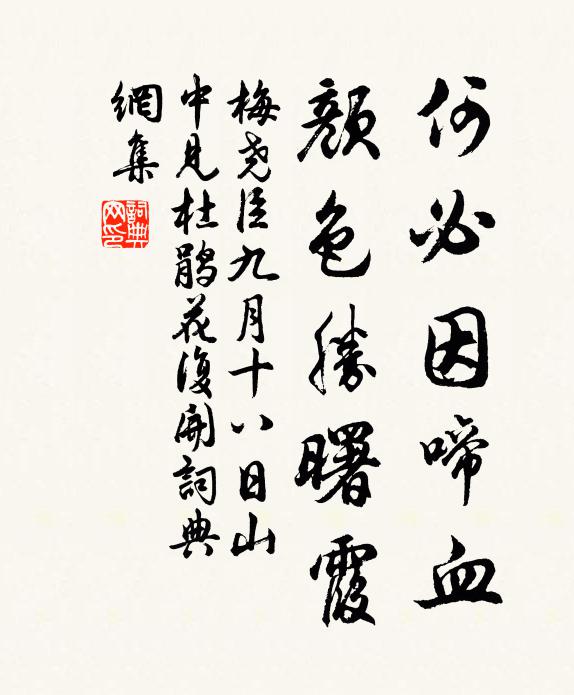 何必因啼血
顔色勝曙霞
梅堯臣九月十八日山
中見杜鵑花復開詞典
網集
詞典
网印